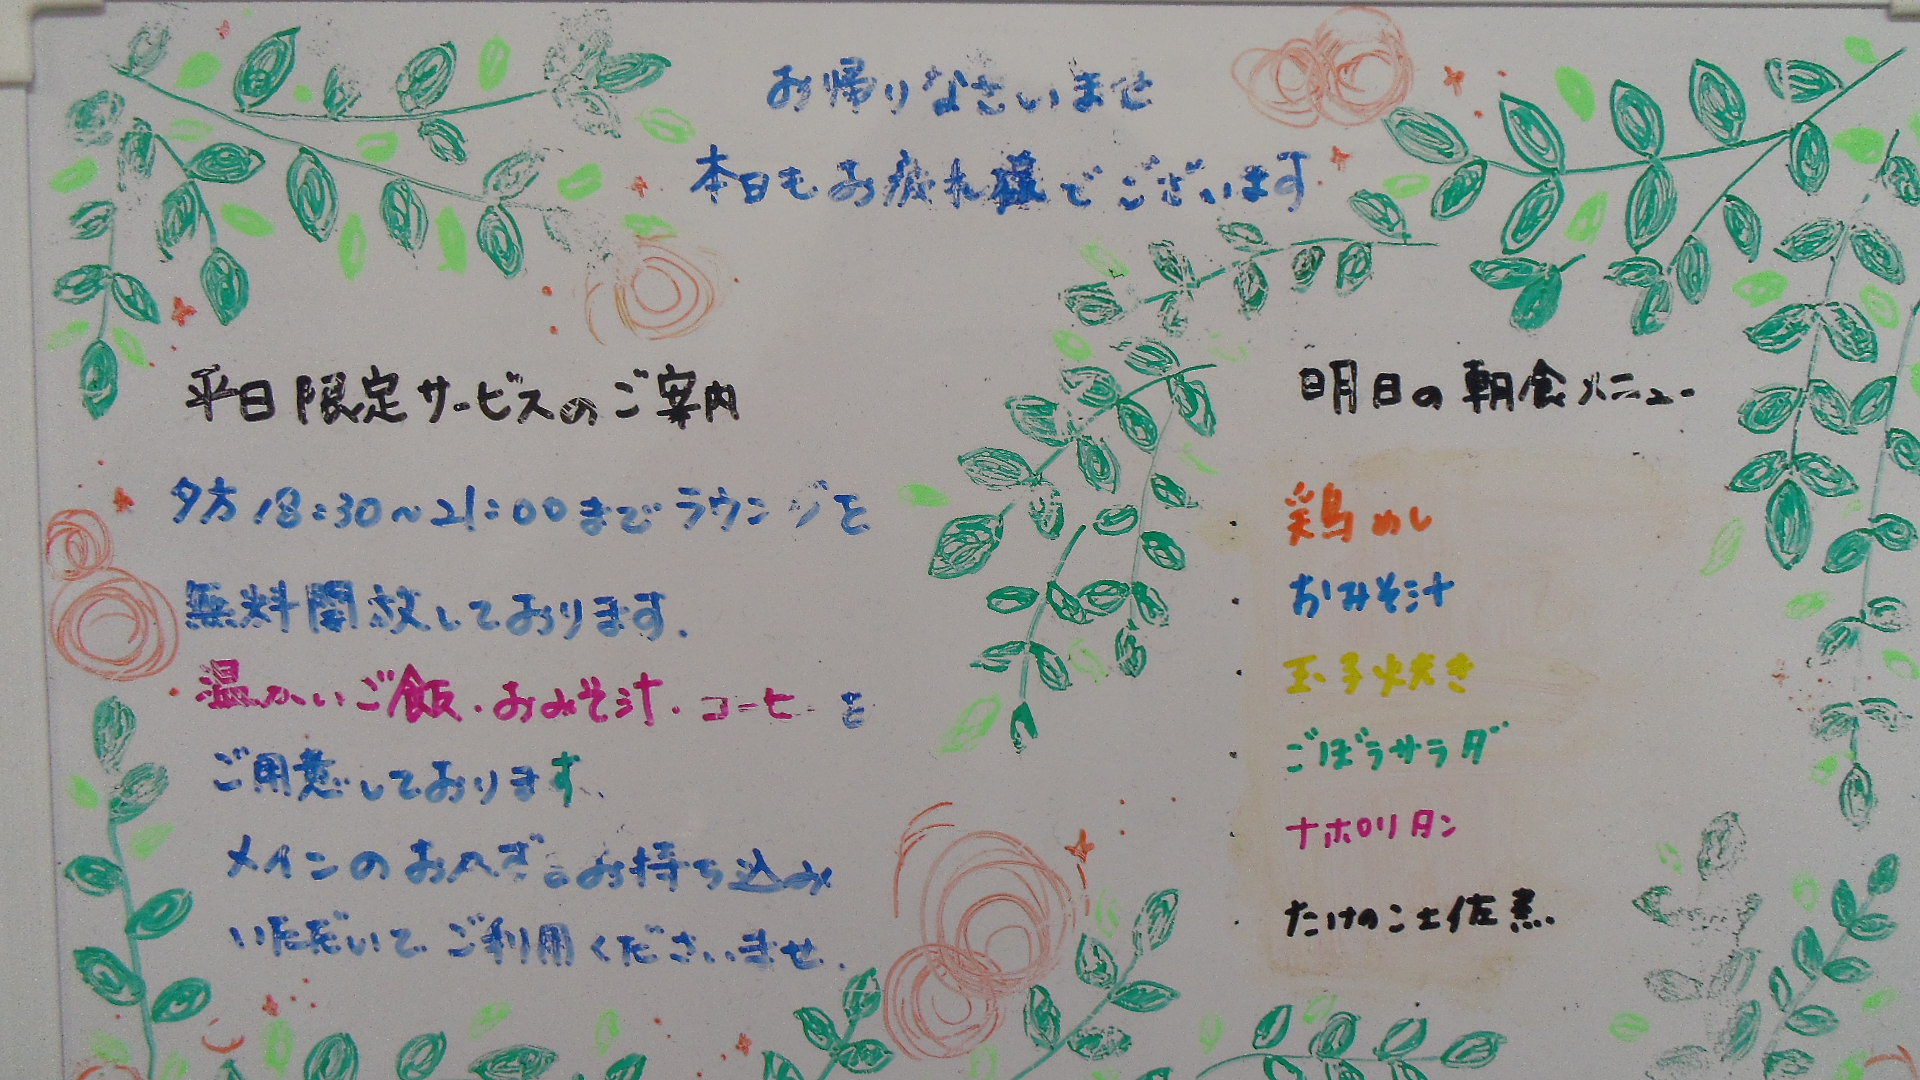 お帰りなさいませ
本日もお疲れ様でございます
平日限定サービスのご案内
夕方18:30~21:00までラウンジを
無料開放しております.
温かいご飯・おみそ汁・コーヒーを
ご用意しております.
メインのおかずをお持ち込み
いただいてご利用くださいませ.
明日の朝食メニュー
・鶏めし
・おみそ汁
・玉子焼き
・ごぼうサラダ
・ナポリタン
・たけのこ土佐煮